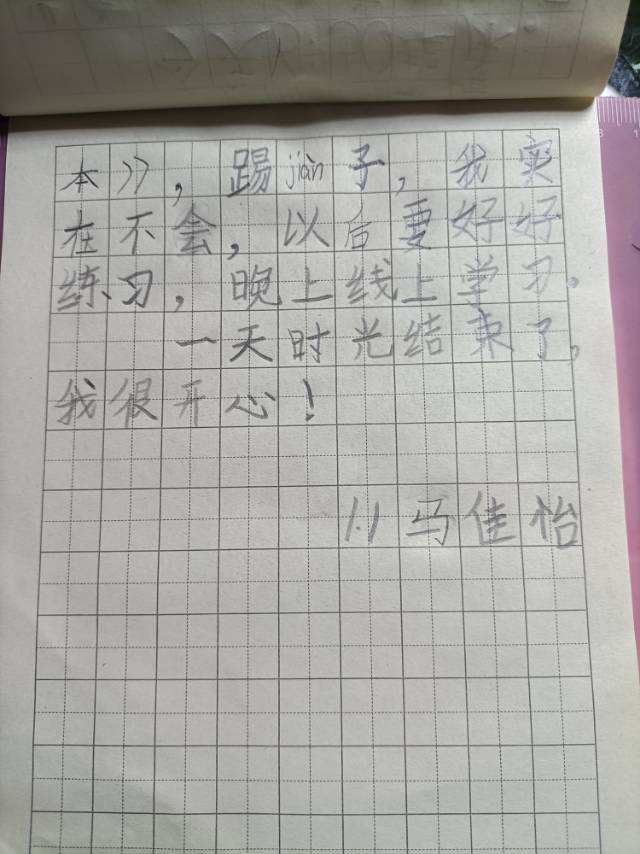 本》，踢jiàn子，我实
在不会，以后要好好
练习，晚上线上学习。
一天时光结束了。
我很开心！
1.1马佳怡